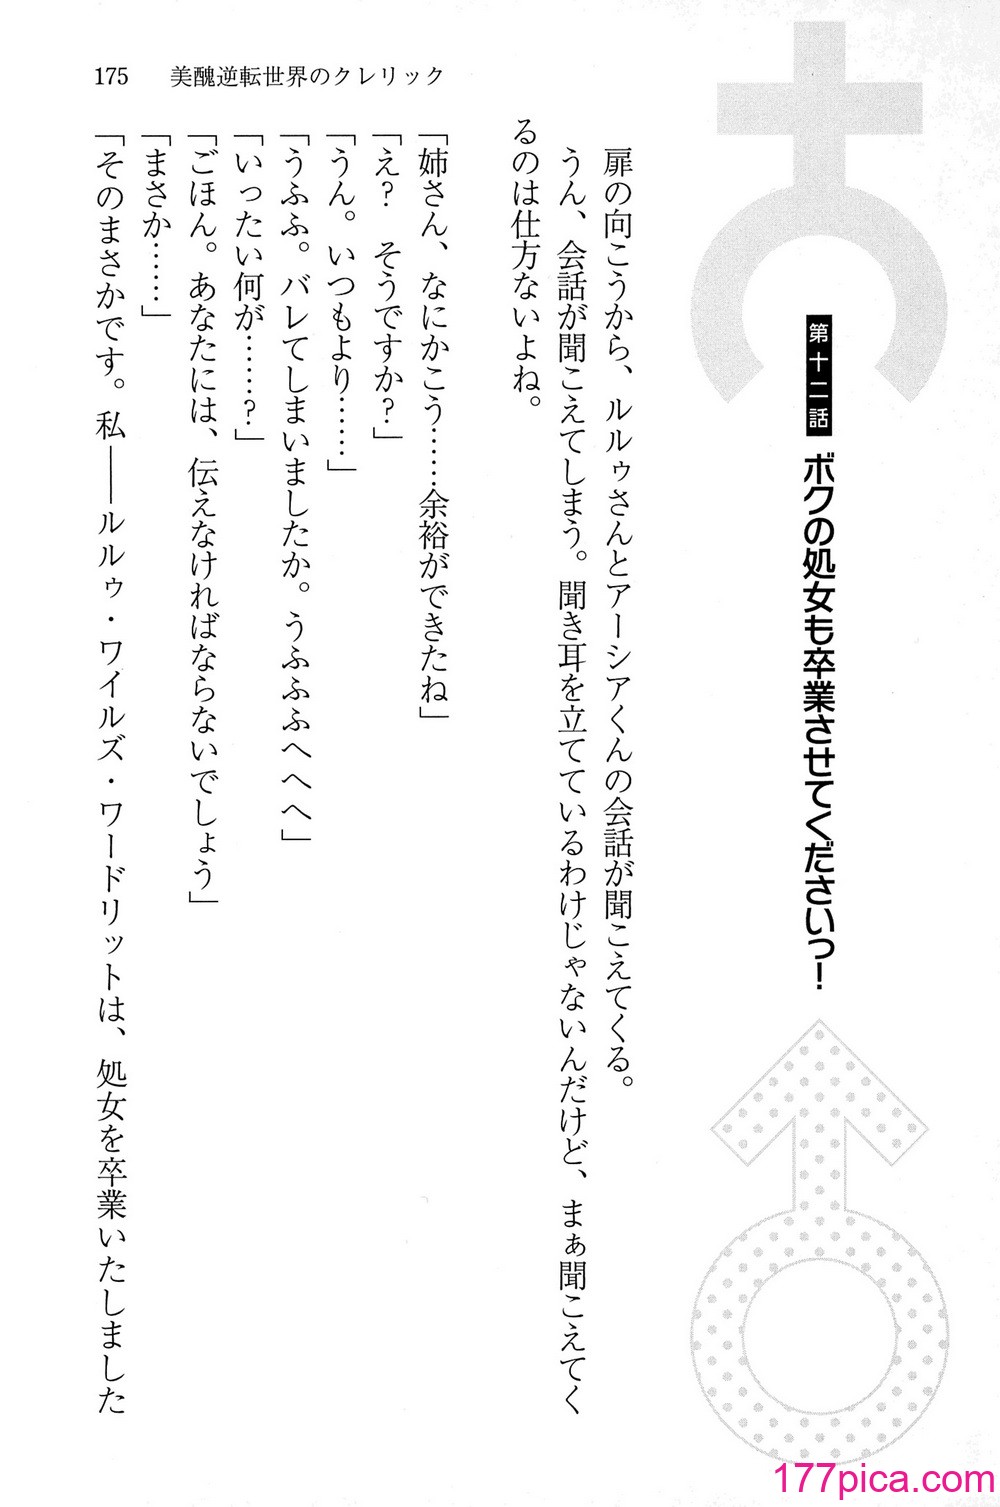 175 美醜逆転世界のクレリック
第十二話 ボクの処女も卒業させてくださいっ！
扉の向こうから、ルルゥさんとアーシアくんの会話が聞こえてくる。
うん、会話が聞こえてしまう。聞き耳を立てているわけじゃないんだけど、まぁ聞こえてく
るのは仕方ないよね。
「姉さん、なにかこう……余裕ができたね」
「え？　そうですか？」
「うん。いつもより……」
「うふふ。バレてしまいましたか。うふふふへへへ」
「いったい何が……？」
「ごほん。あなたには、伝えなければならないでしょう」
「まさか……」
「そのまさかです。私――ルルゥ・ワイルズ・ワードリットは、処女を卒業いたしました
177pica.com